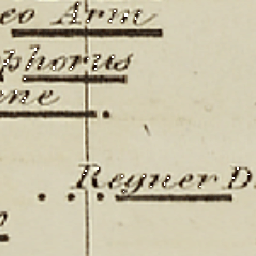 eo Arm
phorus
ene
Regner D